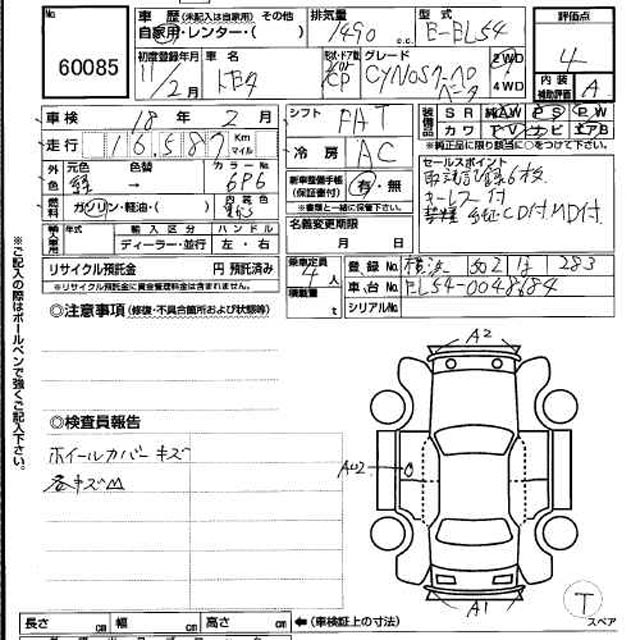 No. 60085
車歴 (未記入は自家用) その他
自家用・レンター・( )
排気量 1490 c.c.
型式 E-EL54
評価点 4
内装補助評価 A
初度登録年月 11/2月
車名 トヨタ
形状・ドア数 CP
グレード CYNOS
2WD
4WD
車検 18年 2月
シフト FAT
装備品
S R 純AW P S P W
カワ TV ナビ エアB
※純正品に限り該当に○をつけて下さい。
走行 16,587 Km マイル
冷房 AC
セールスポイント
取説記録6枚
キーレス付
禁煙 CD付 MD付
外色
元色 緑
色替 →
カラーNo. 6P6
新車整備手帳(保証書付) 有・無
※書類と一緒に保管下さい。
燃料 ガソリン・軽油・( )
内装色
名義変更期限 月 日
輸入車用
年式
輸入区分
ハンドル
ディーラー・並行
左・右
リサイクル預託金 円 預託済み
※リサイクル預託金に資金管理料金は含まれません。
乗車定員 4人
積載量 t
登録No. 横浜 502 ほ 283
車台No. EL54-0048684
シリアルNo.
◎注意事項 (修復・不具合箇所および状態等)
※ご記入の際はボールペンで強くご記入下さい。
◎検査員報告
ホイールカバーキズ
巻キズ
A2
AU2
A1
T
スペア
長さ cm 幅 cm 高さ cm ←(車検証上の寸法)